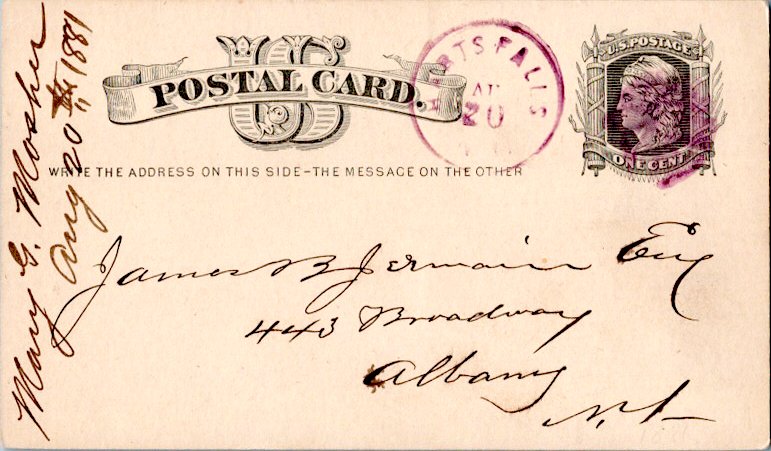 US
POSTAL CARD.
WRITE THE ADDRESS ON THIS SIDE–THE MESSAGE ON THE OTHER
RTS FALLS
AU
20
U.S. POSTAGE
ONE CENT
James B Jermain Esq
443 Broadway
Albany
N.Y.
Mary G. Mosher
Aug 20 " 1881